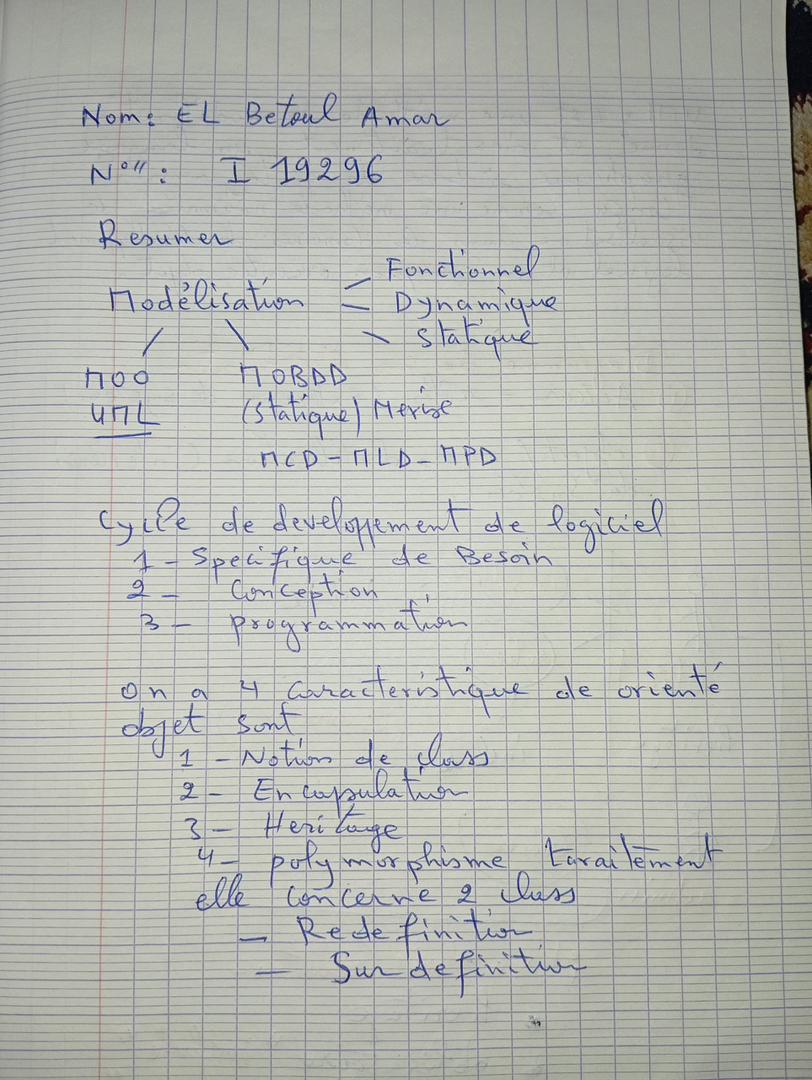 Nom: EL Betoul Amar
N°": I 19296
Resumer
Fonctionnel
Modélisation
Dynamique
Statique
MOO MOBDD
UML (Statique) Merise
MCD - MLD - MPD
Cycle de developpement de logiciel
1 - Specifique de Besoin
2 - Conception
3 - programmation
On a 4 caracteristique de orienté
objet sont
1 - Notion de class
2 - Encapsulation
3 - Heritage
4 - polymorphisme
elle concerne 2 class
- Redefinition
- Surdefinition